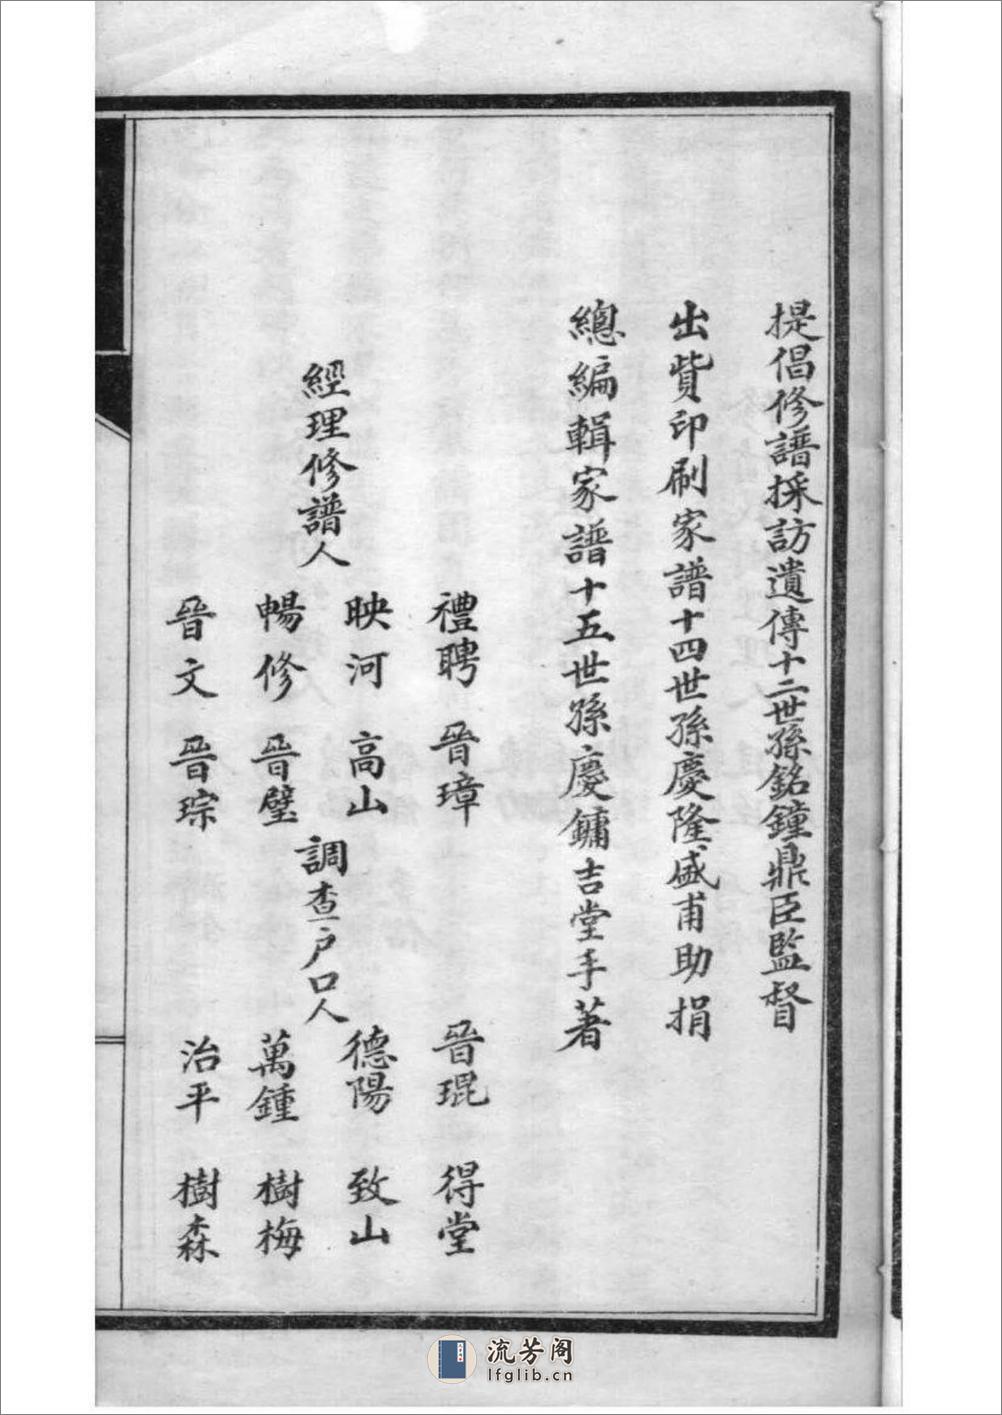 提倡修譜採訪遺傳十二世孫銘鐘鼎臣監督
出貲印刷家譜十四世孫慶隆盛甫助捐
總編輯家譜十五世孫慶鏞吉堂手著
經理修譜人
禮聘 晉璋
映河 高山
暢修 晉璧
晉文 晉琮
調查户口人
晉琨 得堂
德陽 致山
萬鍾 樹梅
治平 樹森
流芳阁
lfglib.cn